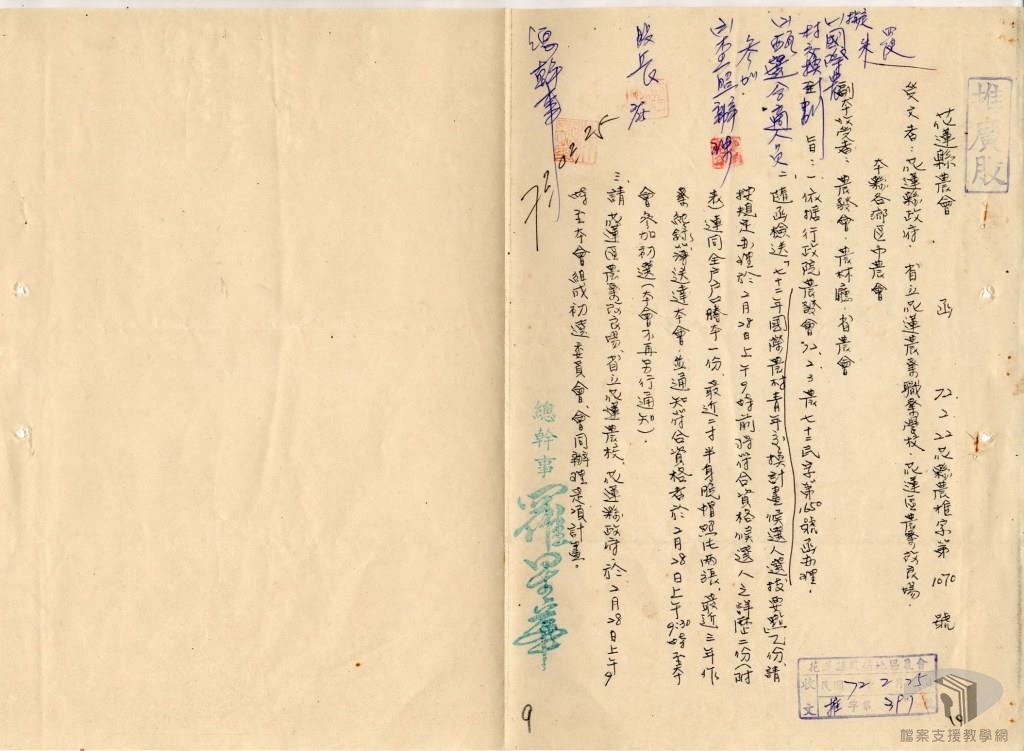 推廣股
花蓮縣農會 函 72.2.22花縣農推字第1070號
受文者：花蓮縣政府．省立花蓮農業職業學校．花蓮區農業改良場．
本縣各鄉區市農會
副本收受者：農發會．農林廳．省農會
主旨：一、依據行政院農發會72.2.3農七十二民字第165號函辦理．
二、隨函檢送「七十二年國際農村青年交換計畫候選人選拔要點」乙份，請
按規定辦理於2月28日上午9時前將符合資格候選人之詳歷二份(附
表)連同全戶戶口謄本一份．最近二寸半身脫帽照片兩張．最近三年作
業紀錄簿送達本會．並通知符合資格者於2月28日上午9:30時至本
會參加初選(本會不再另行通知)．
三、請花蓮區農業改良場、省立花蓮農校、花蓮縣政府於2月28日上午9
時至本會組成初選委員會、會同辦理是項計畫．
總幹事
擬
(1)國際農
村交換計劃
(2)甄選合適人員
參加．
(3)呈照辦理
股長
總幹事
72.2.25
收文
民國72 2月25
推字第397
9
10
檔案支援教學網